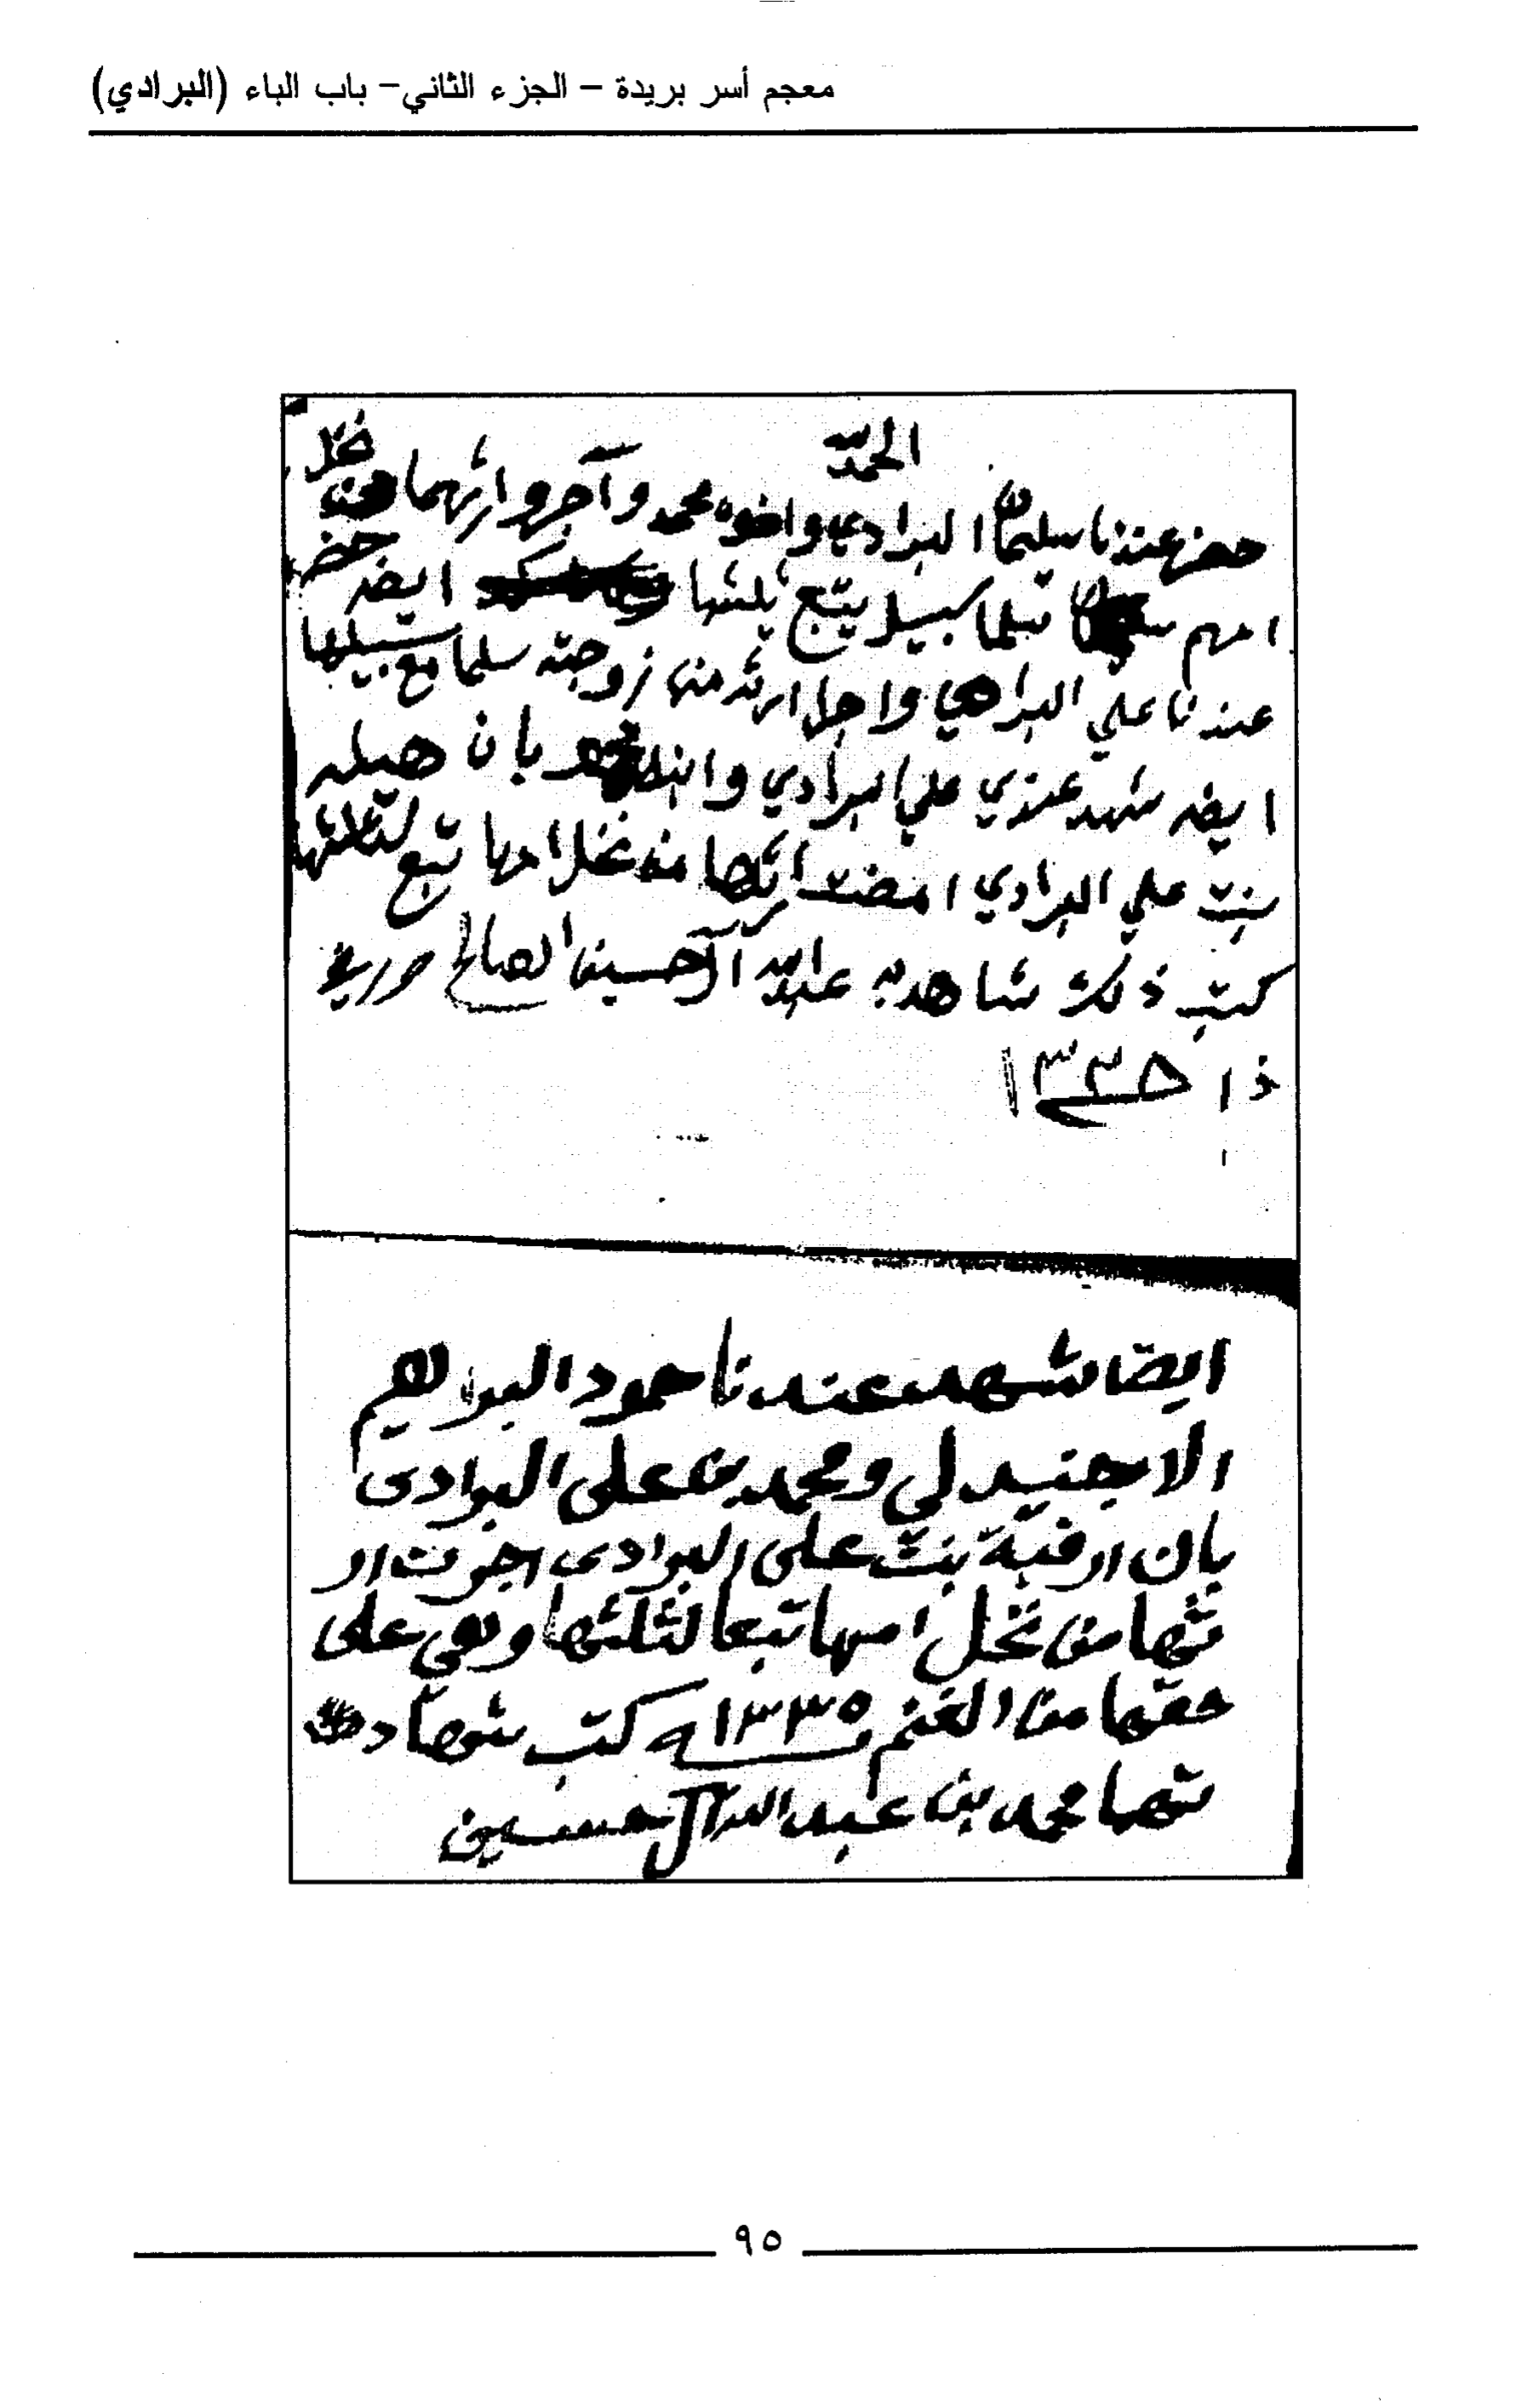 معجم أسر بريدة – الجزء الثاني– باب الباء (البرادي)
الحمدلله
حضر عندنا سليمان البرادي واخوه محمد وآجروا ارثهما من نخل
امهم سلما كسبيل يتبع ثلثها ايضه حضر
عندنا علي البرادي واجل ارثه من زوجته سلما مع سبيلها
ايضه شهد عندي علي البرادي وابنه محمد بان هيله
بنت علي البرادي امضت ارثها من نخل امها تبع لثلثها
كتب ذلك شاهد به عبدالله آل حسين الصالح
١٣٣٥
ايضا شهد عندنا حمود البراهيم
الاجنيدلي ومحمد بن علي البرادي
بان ارقية بنت علي البرادي اجرت ار
ثها من نخل امها تبعا لثلثها وهي على
حقها من الغنم ١٣٣٥ كتب شهاد
تهما محمد بن عبدالله آل حسين
٩٥